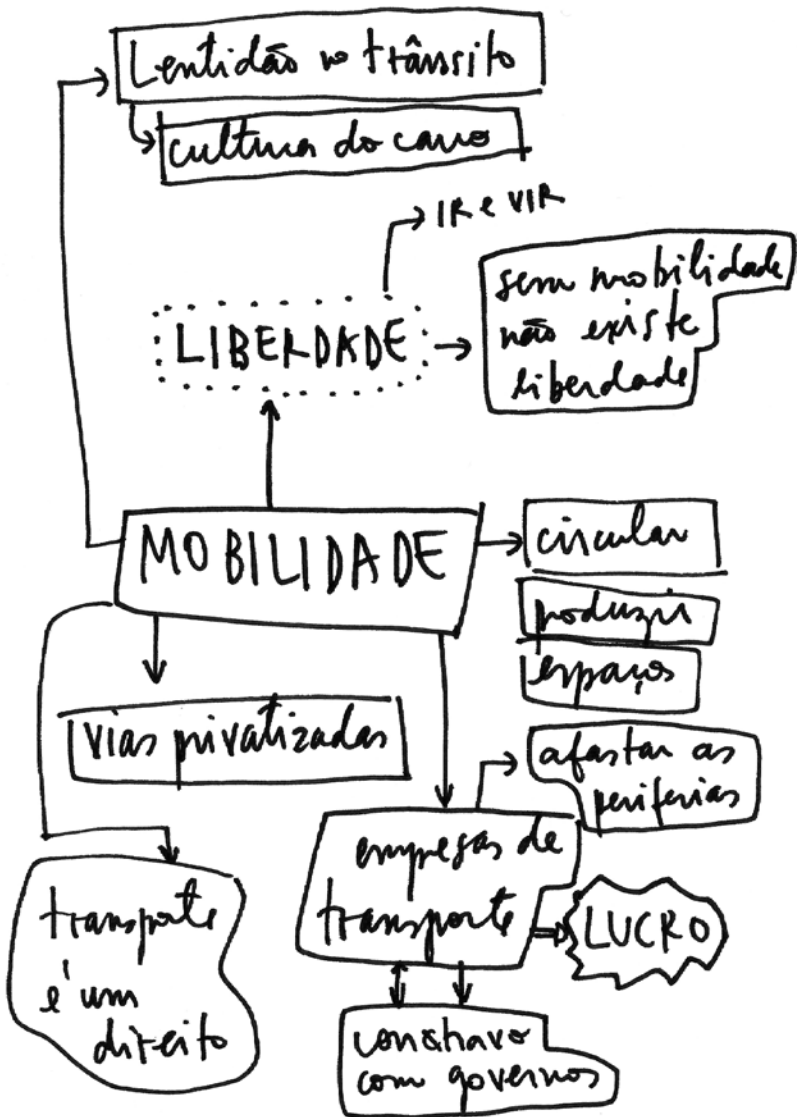 Lentidão no trânsito
cultura do carro
IR e VIR
LIBERDADE
sem mobilidade
não existe
liberdade
MOBILIDADE
circular
produzir
espaços
vias privatizadas
afastar as
periferias
empresas de
transporte
LUCRO
transporte
é um
direito
conchavo
com governos